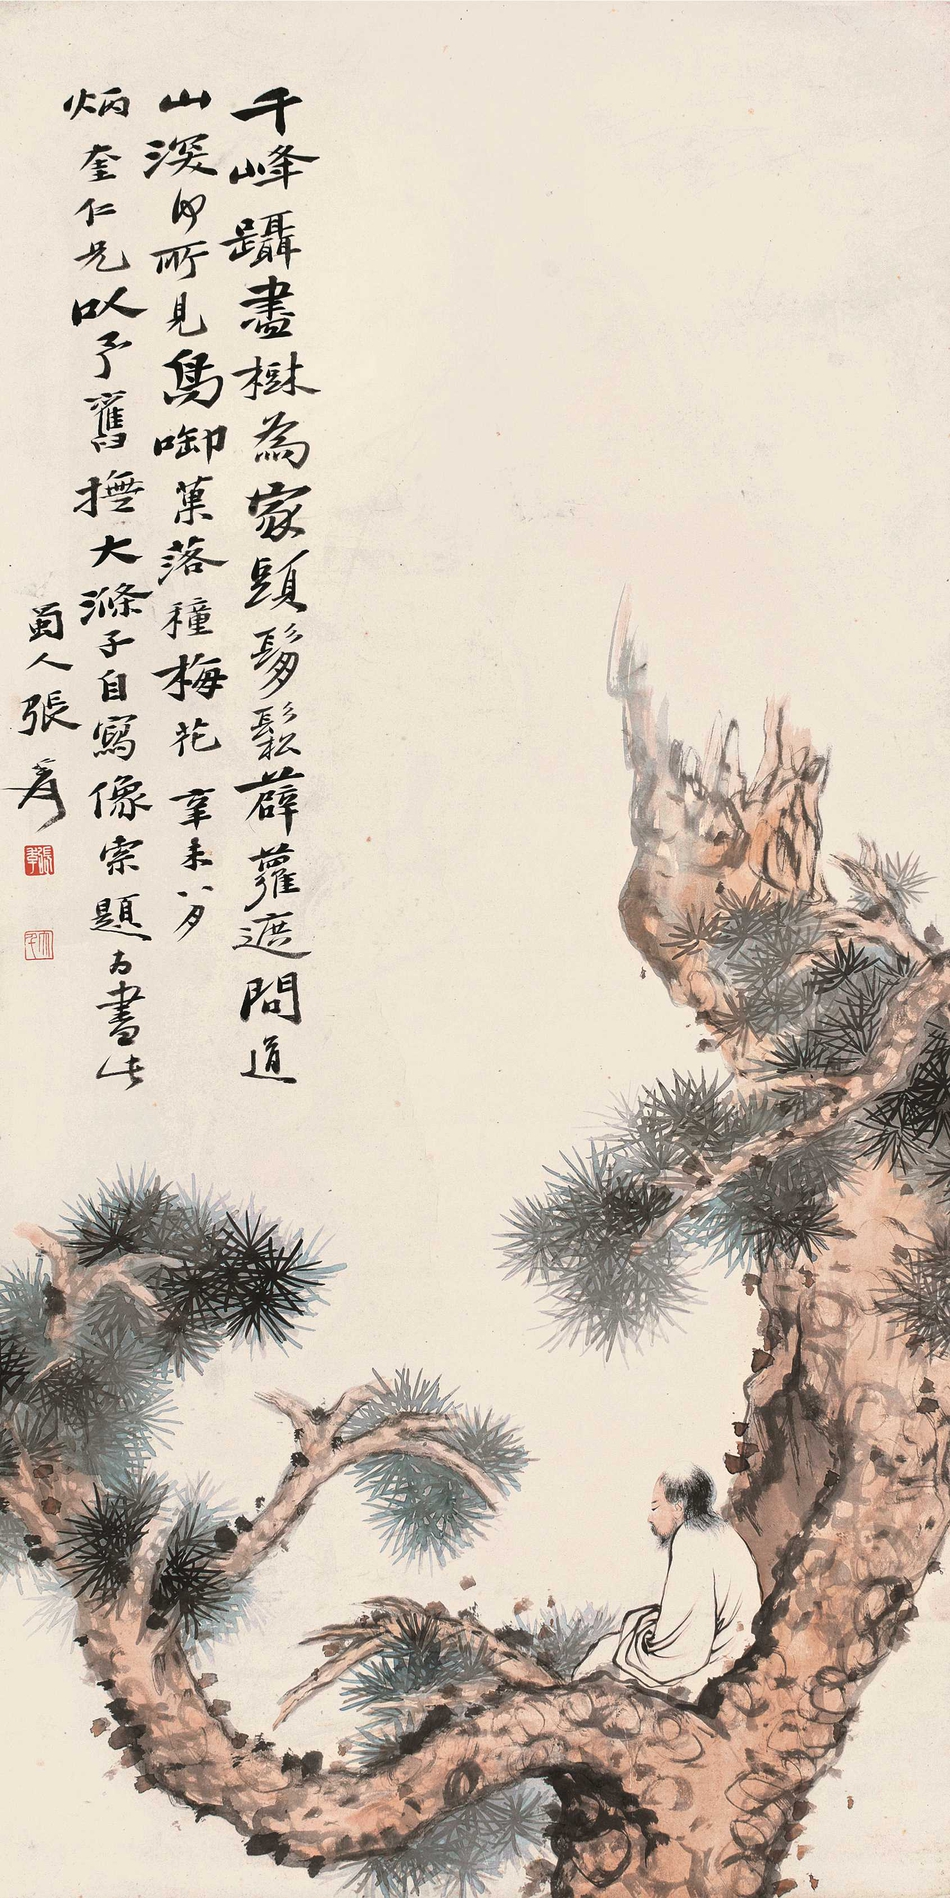 千峰躡盡樹為家頭鬢鬆鬆薜蘿遮問道
山深何所見鳥啣菓落種梅花辛未八月
炳奎仁兄以予舊撫大滌子自寫像索題為畫此
蜀人張爰